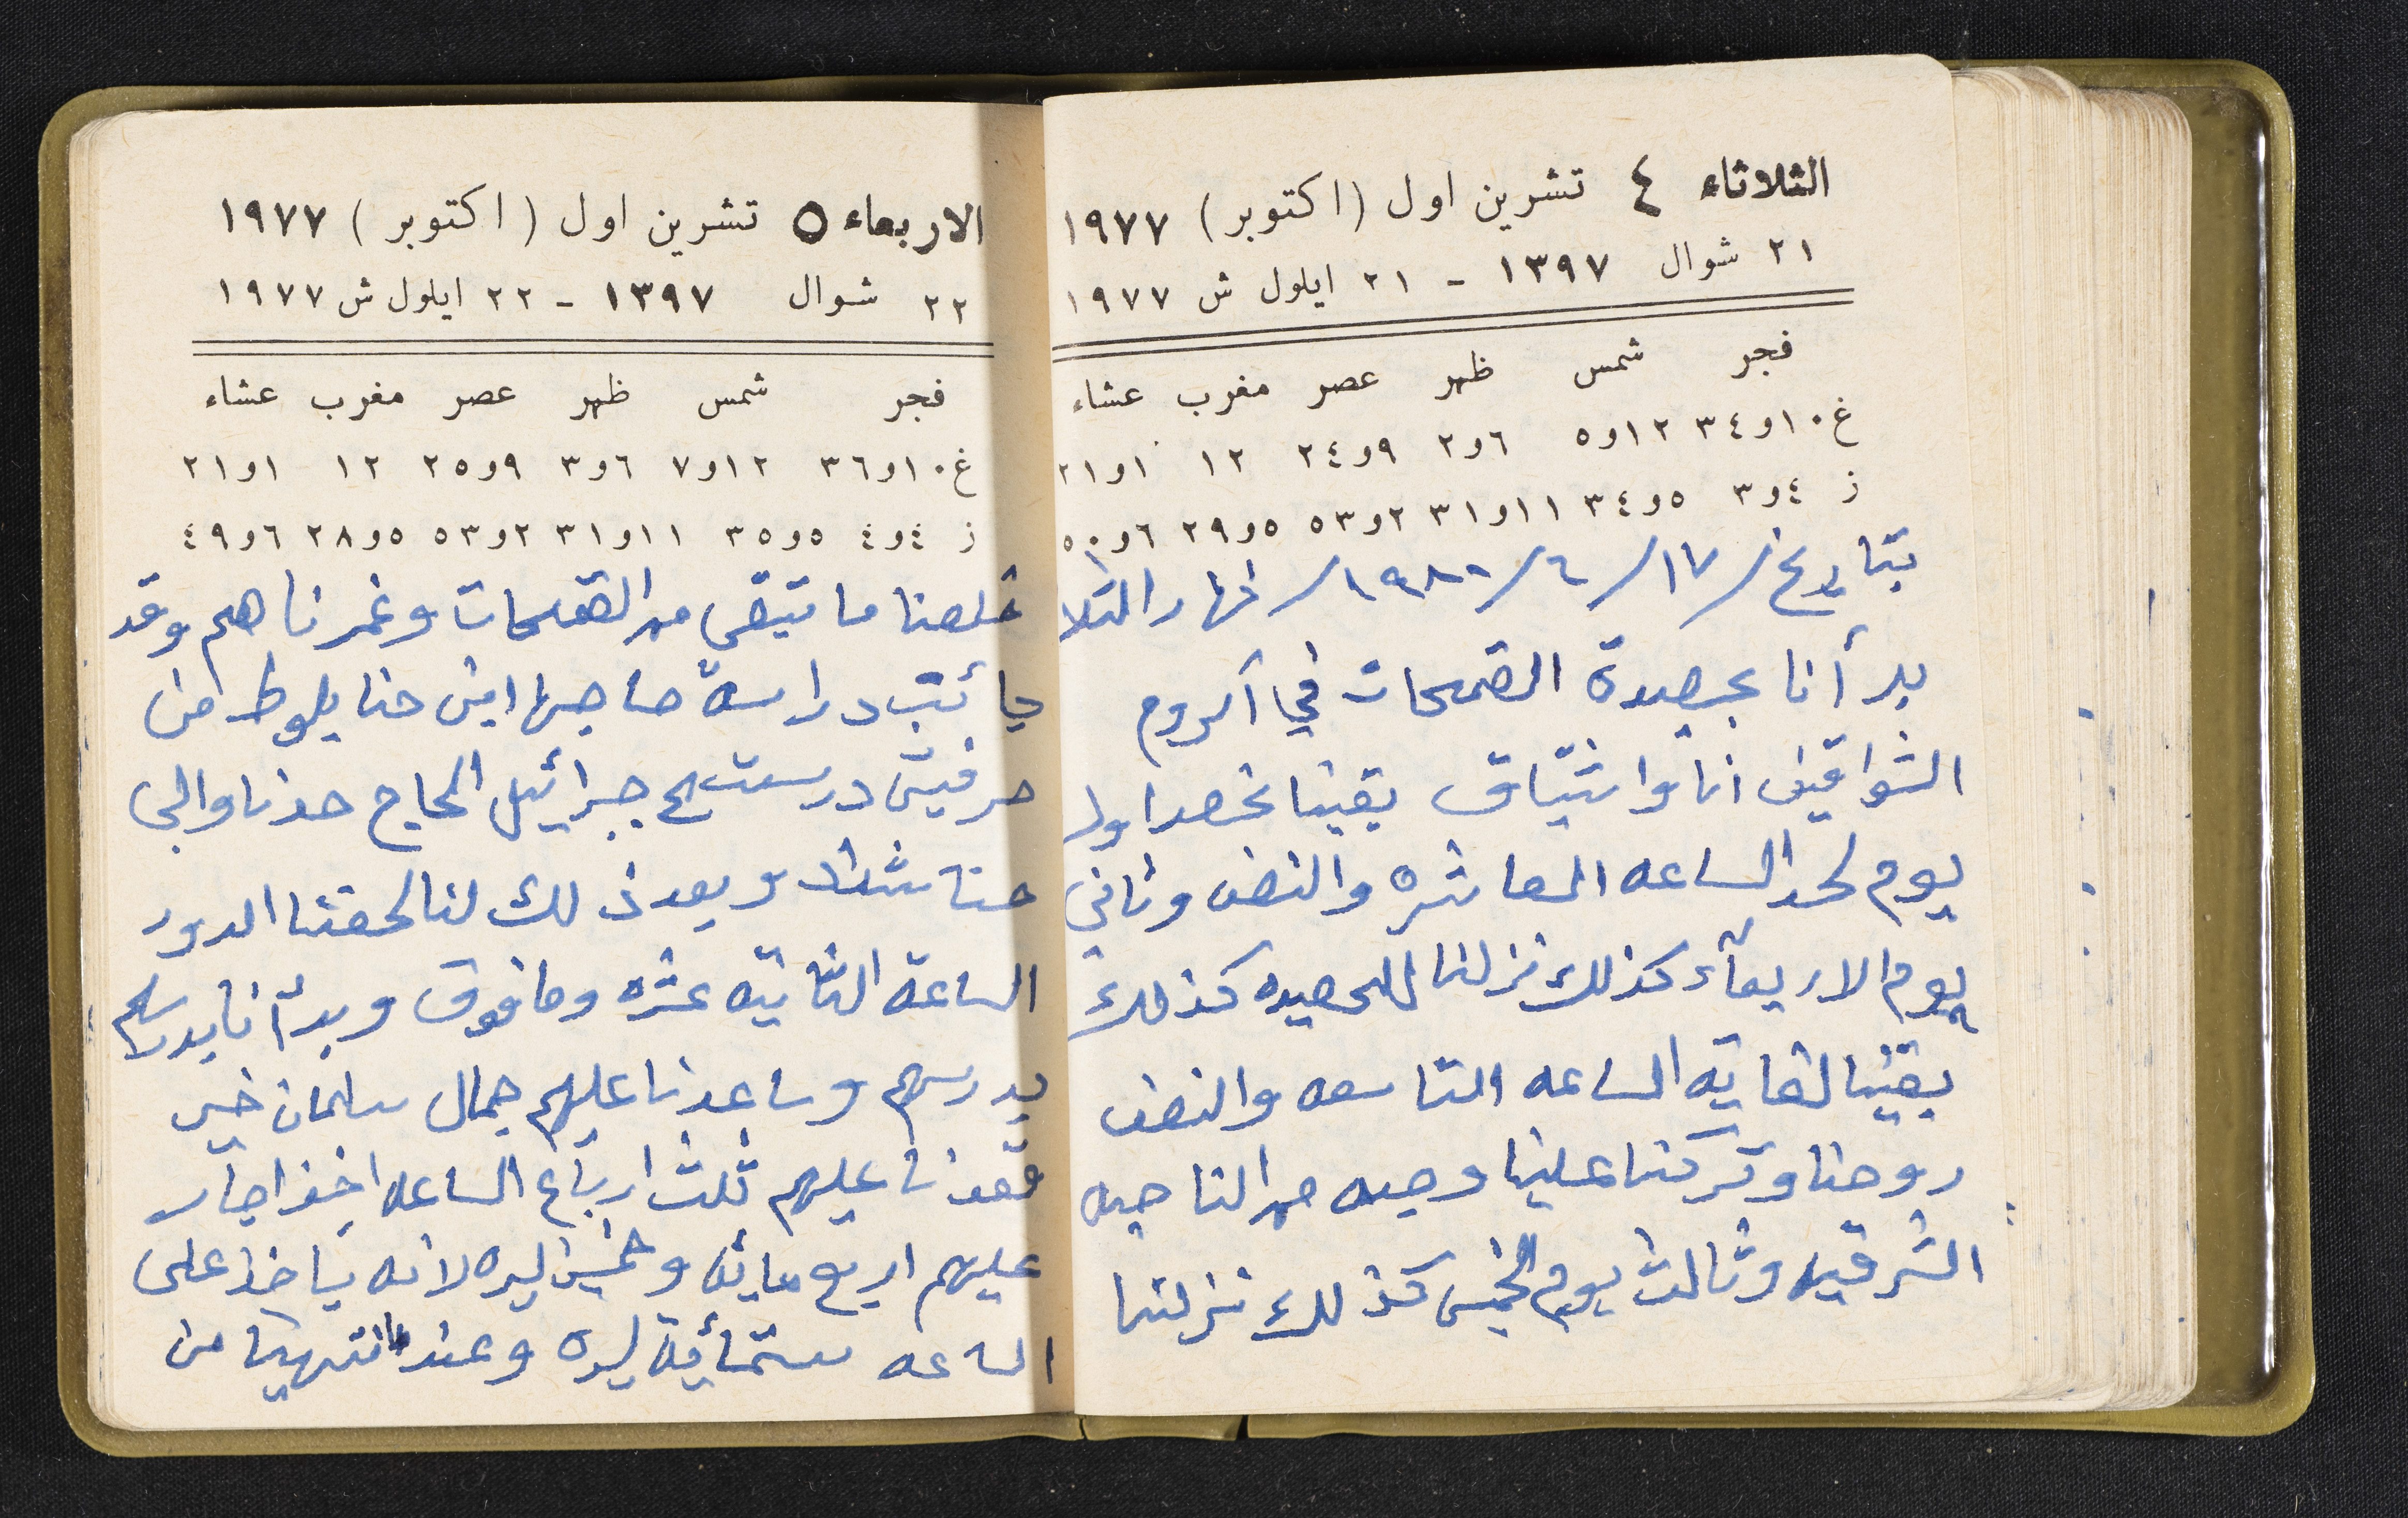 الثلاثاء ٤ تشرين اول (اكتوبر) ١٩٧٧
٢١ شوال ١٣٩٧ - ٢١ ايلول ش ١٩٧٧
فجر شمس ظهر عصر مغرب عشاء
غ ١٠و٣٤ ١٢و٥ ٦و٢ ٩و٢٤ ١٢ ١و٢١
ز ٤و٣ ٥و٣٤ ١١و٣١ ٢و٥٣ ٥و٢٩ ٦و٥٠
بتاريخ / ١٧ / ٦ / ١٩٨٠ / نهار الثلا
بدأنا بحصيدة القمحات في آكروم
الشواقيف انا واشتياق بقينا نحصد اول
يوم لحد الساعه العاشره والنصف وثاني
يوم الاربعآء كذلك نزلنا للحصيده كذلك
بقينا لغاية الساعه التاسعه والنصف
روحنا وتركنا علينا وجبه من الناحيه
الشرقيه وثالث يوم الخميس كذلك نزلنا
الاربعاء ٥ تشرين اول (اكتوبر) ١٩٧٧
٢٢ شوال ١٣٩٧ - ٢٢ ايلول ش ١٩٧٧
فجر شمس ظهر عصر مغرب عشاء
غ ١٠و٣٦ ١٢و٧ ٦و٣ ٩و٢٥ ١٢ ١و٢١
ز ٤و٤ ٥و٣٥ ١١و٣١ ٢و٥٣ ٥و٢٨ ٦و٤٩
خلصنا ما تبقى من القمحات وغمرناهم وقد
جائت دراسة صاحبها ابن حنا بلوط من
درست لجبرائيل الحاج حدنا والى
حنا وبعد ذلك لنا لحقنا الدور
الساعة الثانيه عشره وما فوق وبدأنا
بدرسهم وساعدنا عليهم جمال سلمان
قعدنا عليهم ثلث ارباع الساعه اخذ اجار
عليهم اربع مائة وخمسين ليره لانه ياخذ على
الساعه ستمأية ليره وعند ما انتهينا من